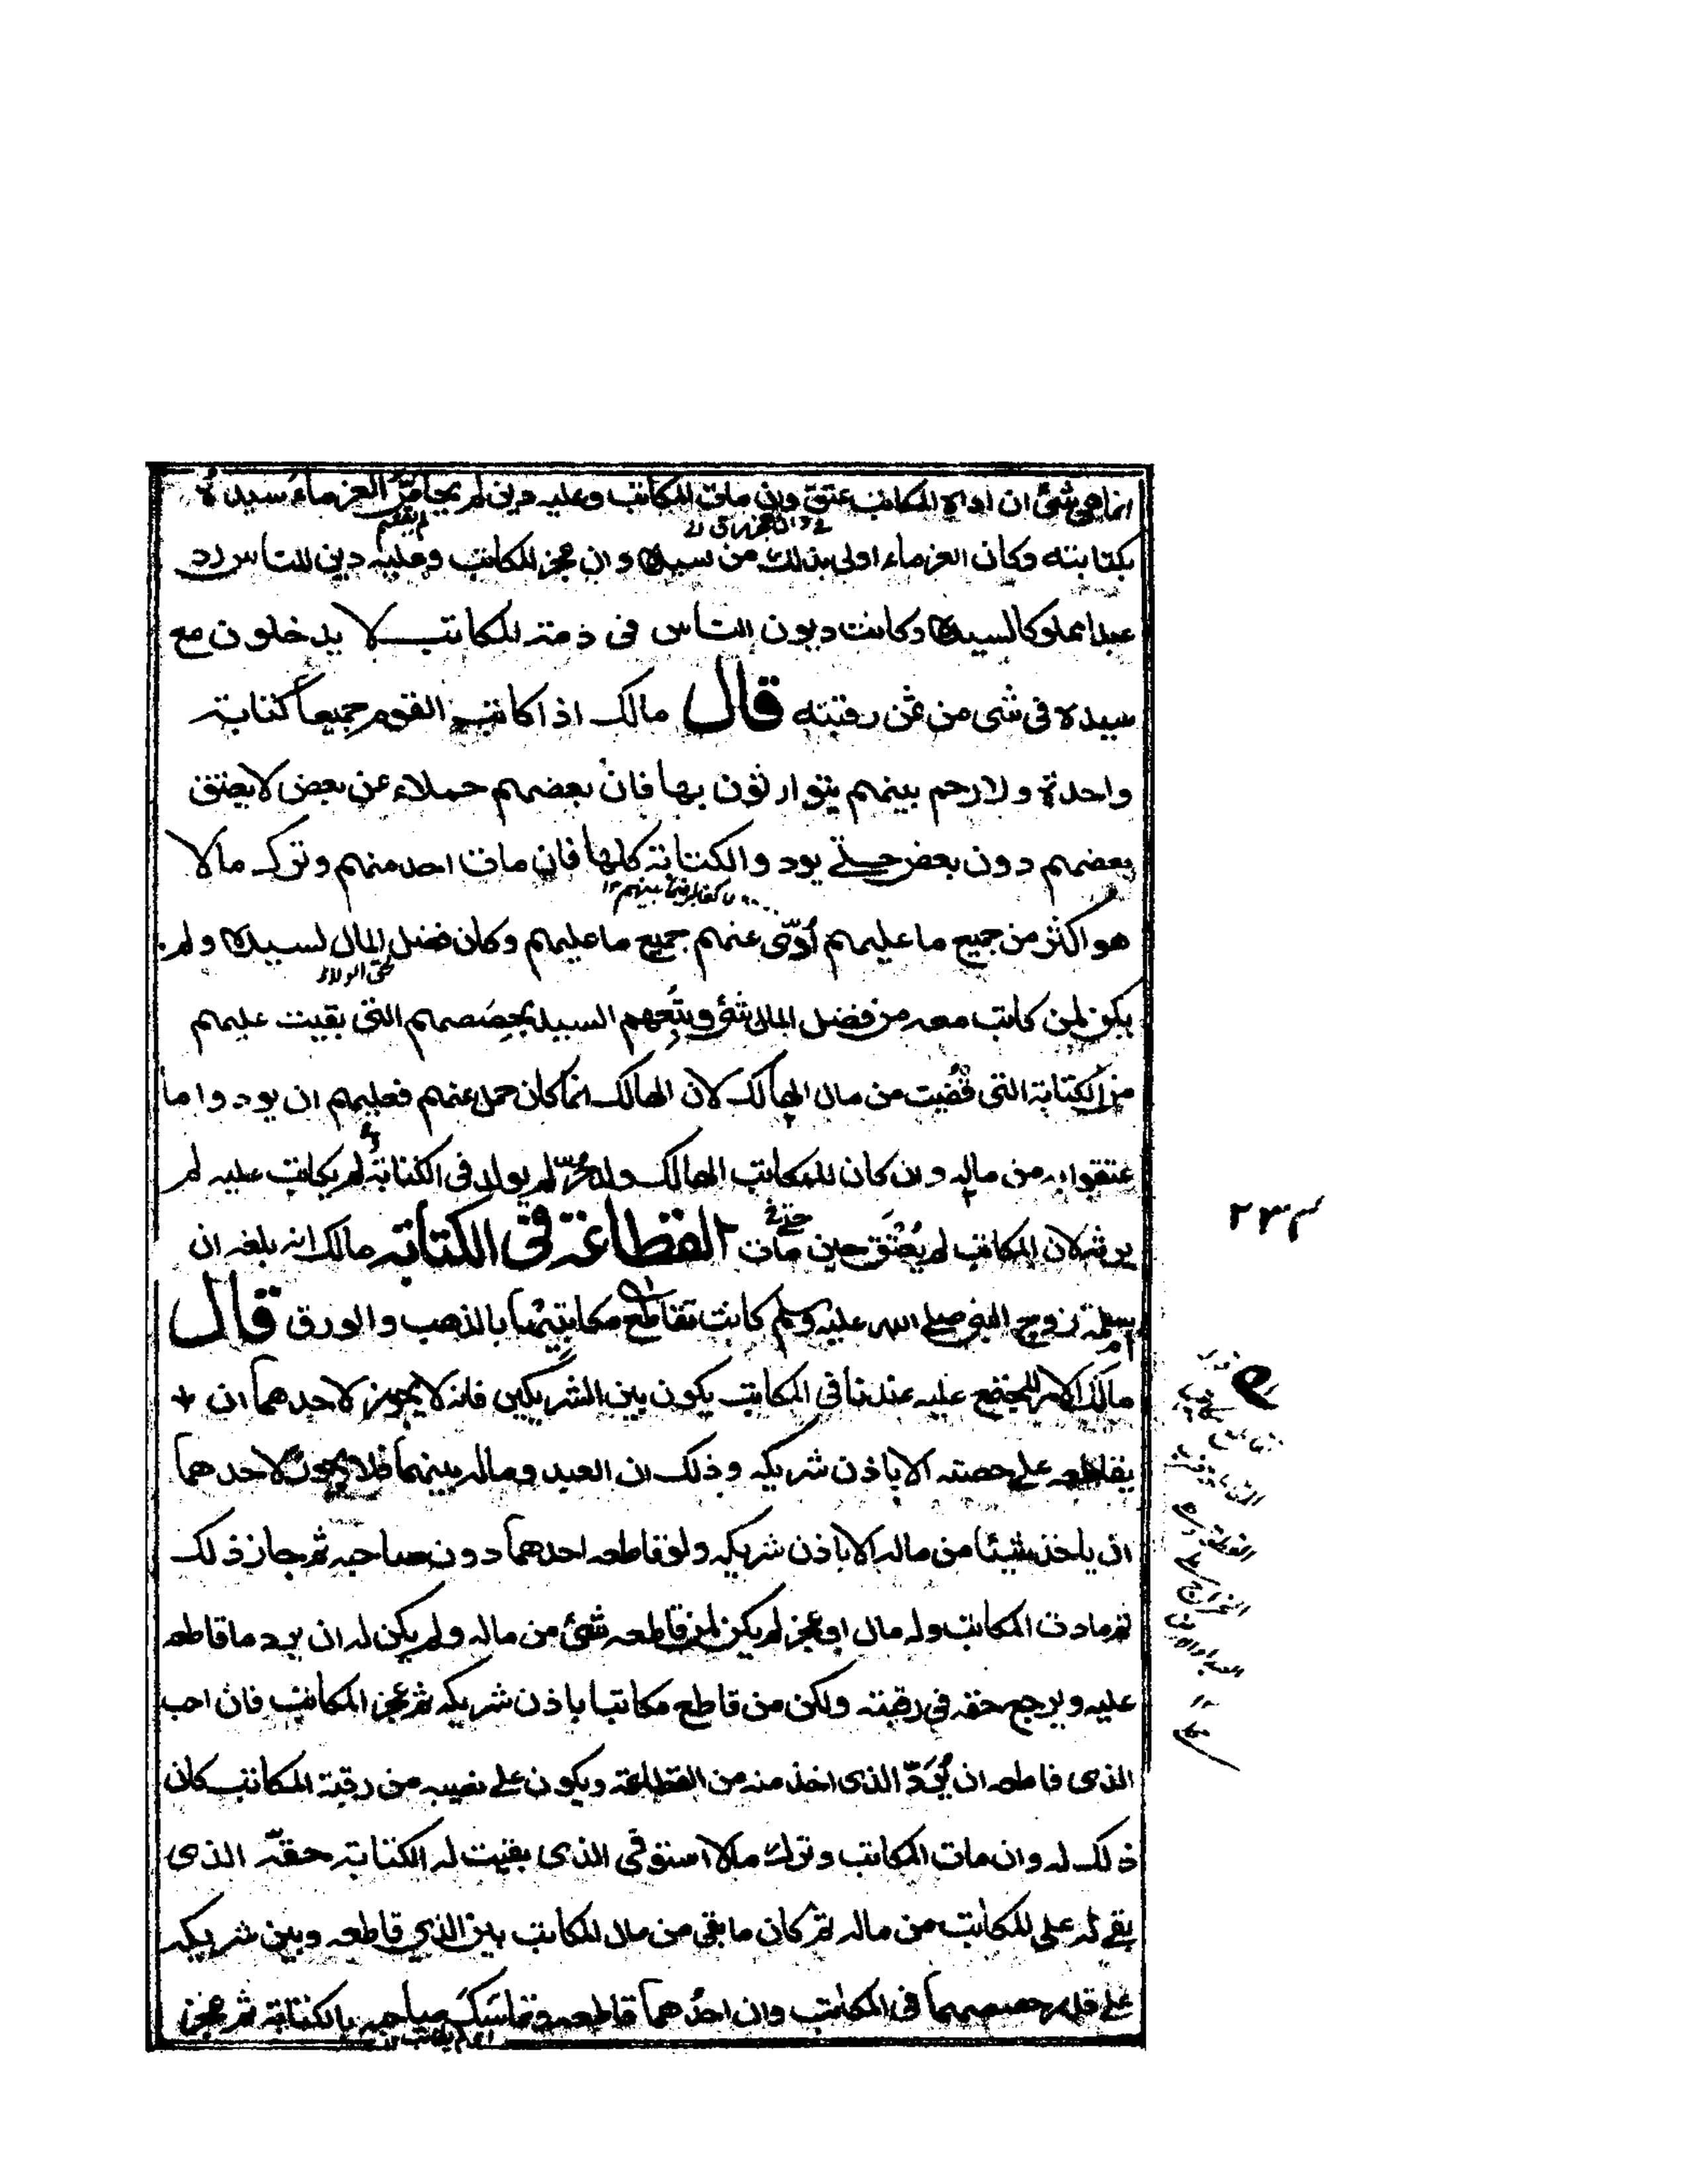 انما هي شئ ان اداه المكاتب عتق وان مات المكاتب وعليه دين لم يحاص الغرماء سيده
بكتابته وكان الغرماء اولى بذلك من سيده وان عجز المكاتب وعليه دين للناس رد
عبدا مملوكا لسيده وكانت ديون الناس فى ذمة المكاتب لا يدخلون مع
سيده فى شى من ثمن رقبته قال مالك اذا كاتب القوم جميعا كتابة
واحدة ولا رحم بينهم يتوارثون بها فان بعضهم حملاء عن بعض لا يعتق
بعضهم دون بعض حتے يودوا الكتابة كلها فان مات احد منهم وترك مالا
هو اكثر من جميع ما عليهم أدّى عنهم جميع ما عليهم وكان فضل المال لسيده ولم
يكن لمن كاتب معه من فضل المال شئ ويتبعهم السيد بحصصهم التى بقيت عليهم
من الكتابة التى قُضيت من مال الهالك لان الهالك انما كان حمل عنهم فعليهم ان يودوا ما
عتقوا به من ماله وان كان للمكاتب الهالك ولد حرّ لم يولد فى الكتابة لم يكاتب عليه لم
يرثه لان المكاتب لم يُعْتَق حين مات القطاعة فى الكتابة مالك انه بلغه ان
ام سلمة زوج النبى صلے الله عليه وسلم كانت تقاطع مكاتبيها بالذهب والورق قال
مالك الامر المجتمع عليه عندنا فى المكاتب يكون بين الشريكين فانه لا يجوز لاحدهما ان
يقاطعه على حصته الا باذن شريكه وذلك ان العبد وماله بينهما فلا يجوز لاحدهما
ان ياخذ شيئا من ماله الا باذن شريكه ولو قاطعه احدهما دون صاحبه ثم جاز ذلك
ثم مات المكاتب وله مال او عجز لم يكن لمن قاطعه شئ من ماله ولم يكن له ان يرد ما قاطعه
عليه ويرجع حقه فى رقبته ولكن من قاطع مكاتبا باذن شريكه ثم عجز المكاتب فان احب
الذى قاطعه ان يُرَدّ الذى اخذ منه من القطاعة ويكون على نصيبه من رقبة المكاتب كان
ذلك له وان مات المكاتب وترك مالا استوفى الذى بقيت له الكتابة حقه الذى
بقے له على المكاتب من ماله ثم كان ما بقى من مال المكاتب بين الذي قاطعه وبين شريكه
على قدر حصصهما فى المكاتب وان احدُهما قاطعه وتماسَكَ صاحبه بالكتابة ثم عجز